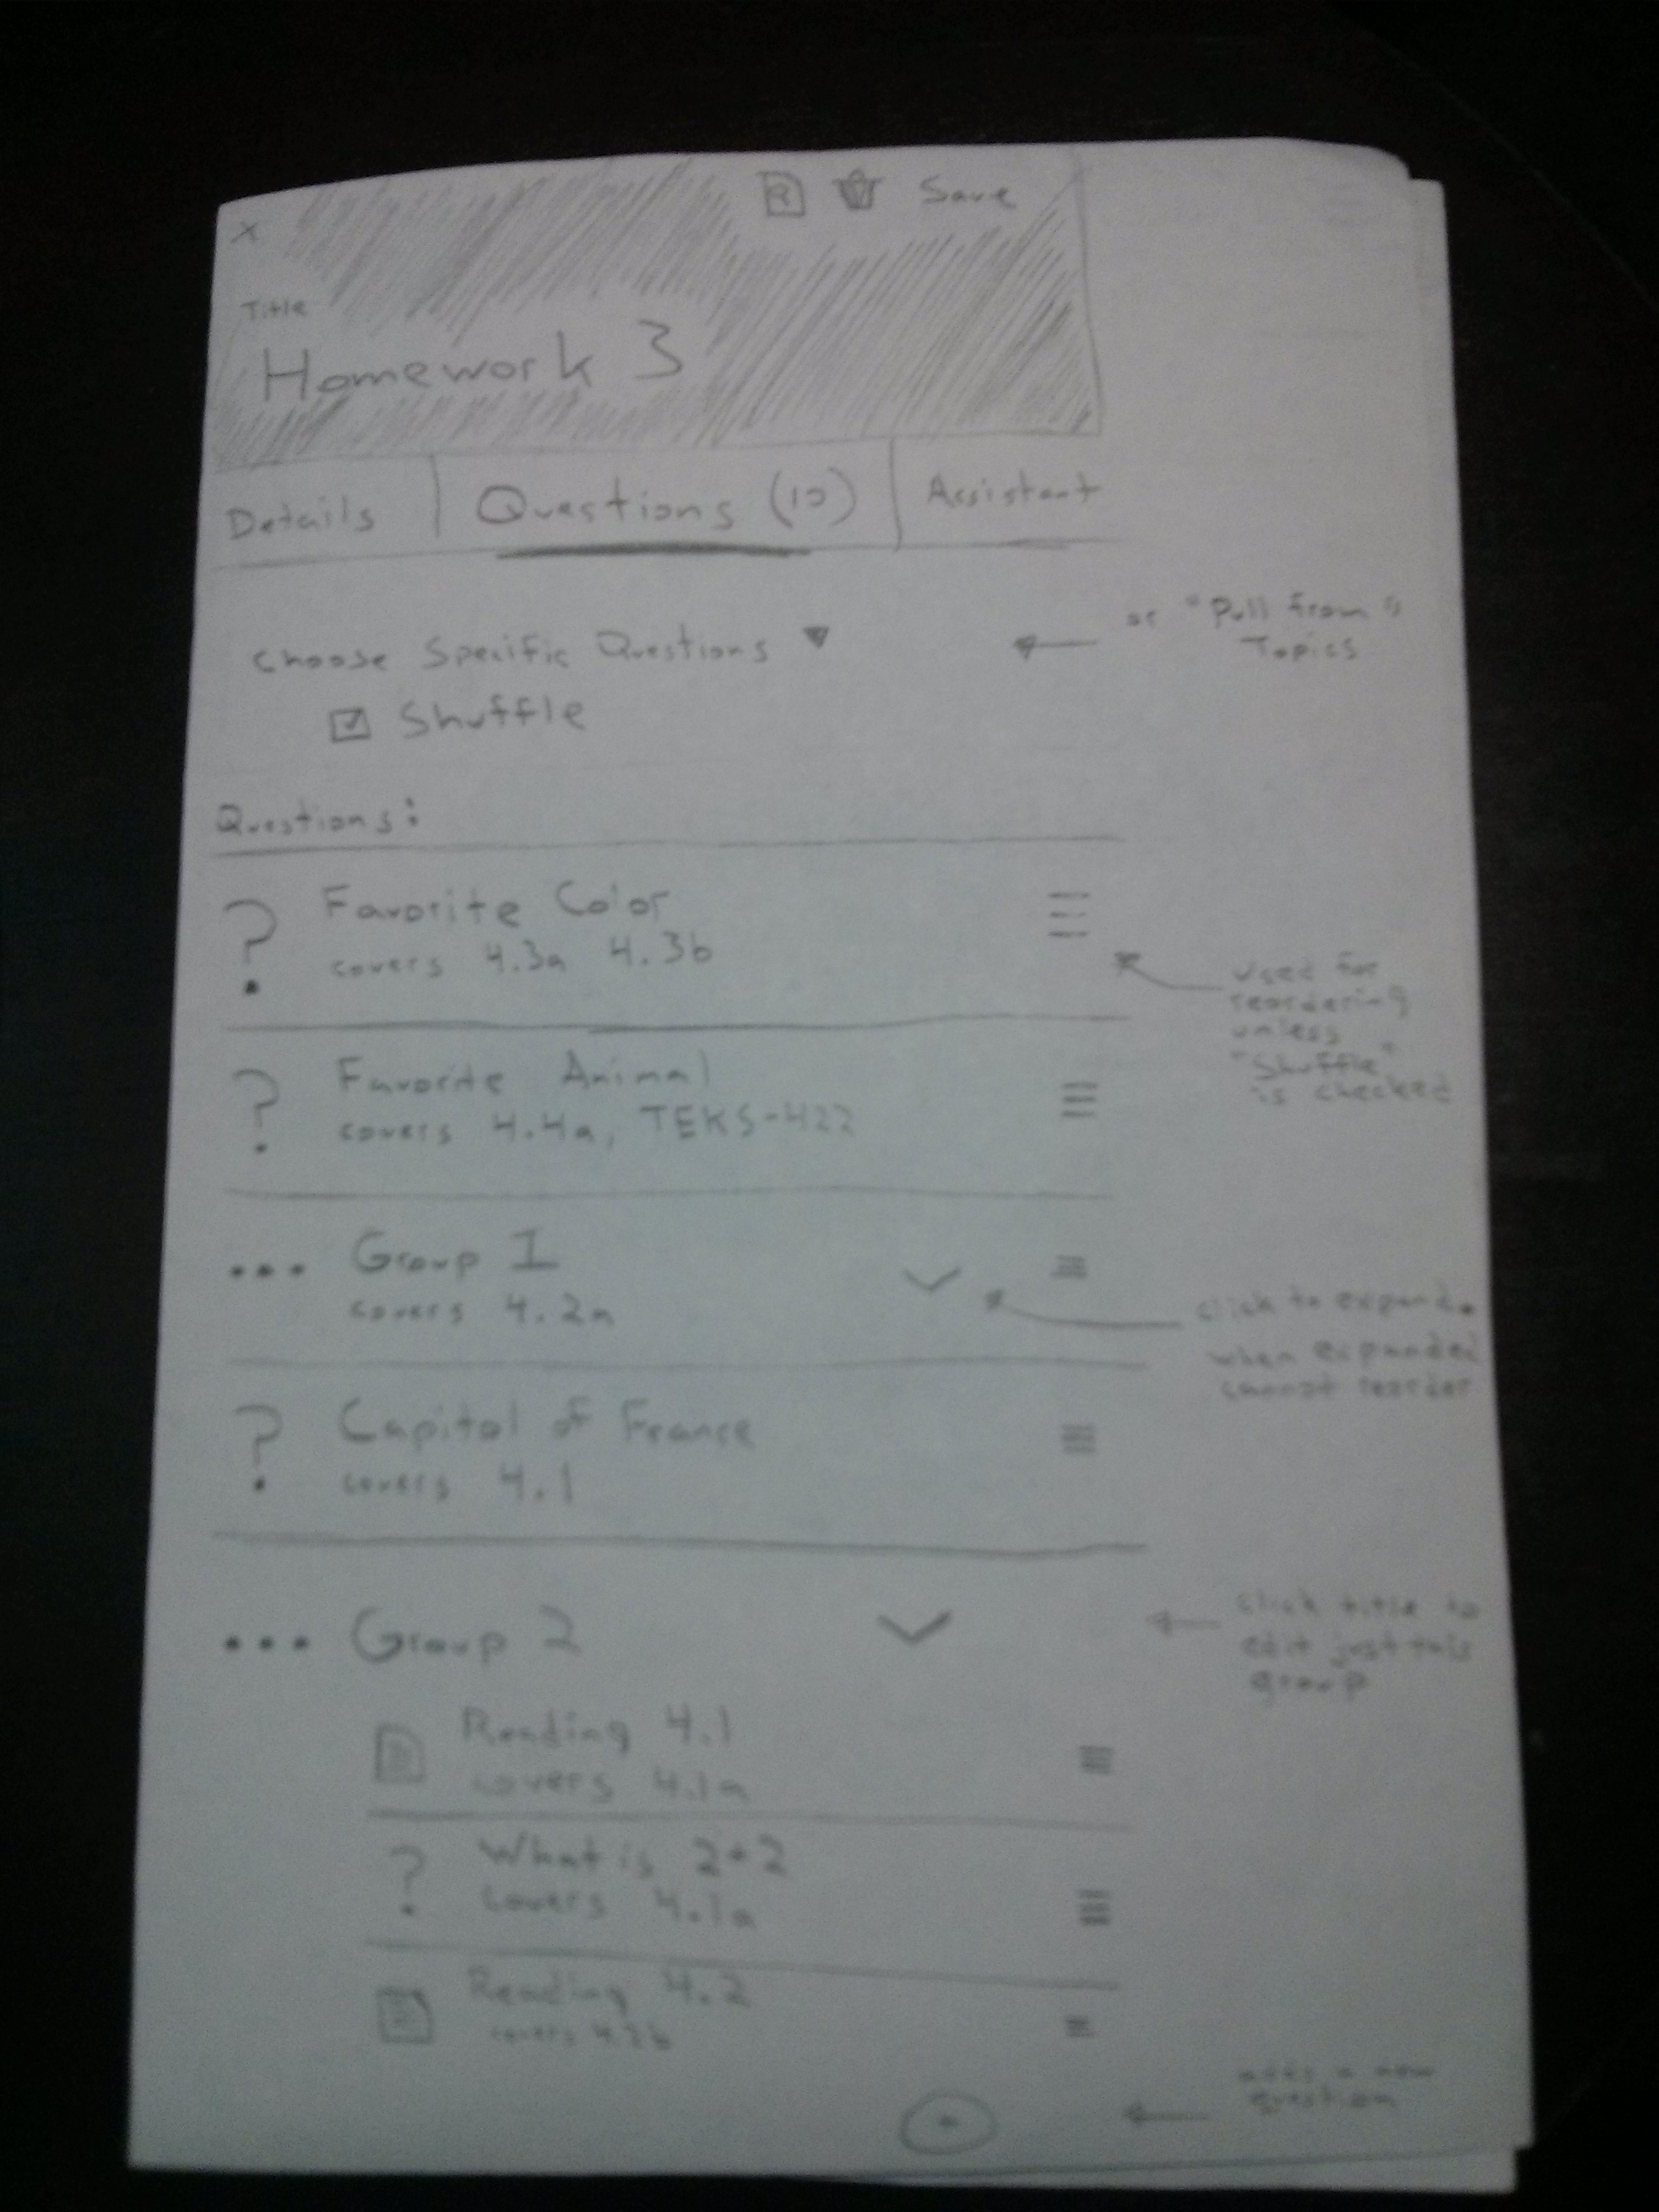 x
Save
Title
Homework 3
Details
Questions (10)
Assistant
Choose Specific Questions
or "Pull from"
Topics
Shuffle
Questions:
? Favorite Color
covers 4.3a 4.3b
used for
reordering
unless
"Shuffle"
is checked
? Favorite Animal
covers 4.4a, TEKS-422
... Group 1
covers 4.2a
click to expand.
when expanded
cannot reorder
? Capitol of France
covers 4.1
... Group 2
click title to
edit just this
group
Reading 4.1
covers 4.1a
? What is 2+2
covers 4.1a
Reading 4.2
covers
+
adds a new
question